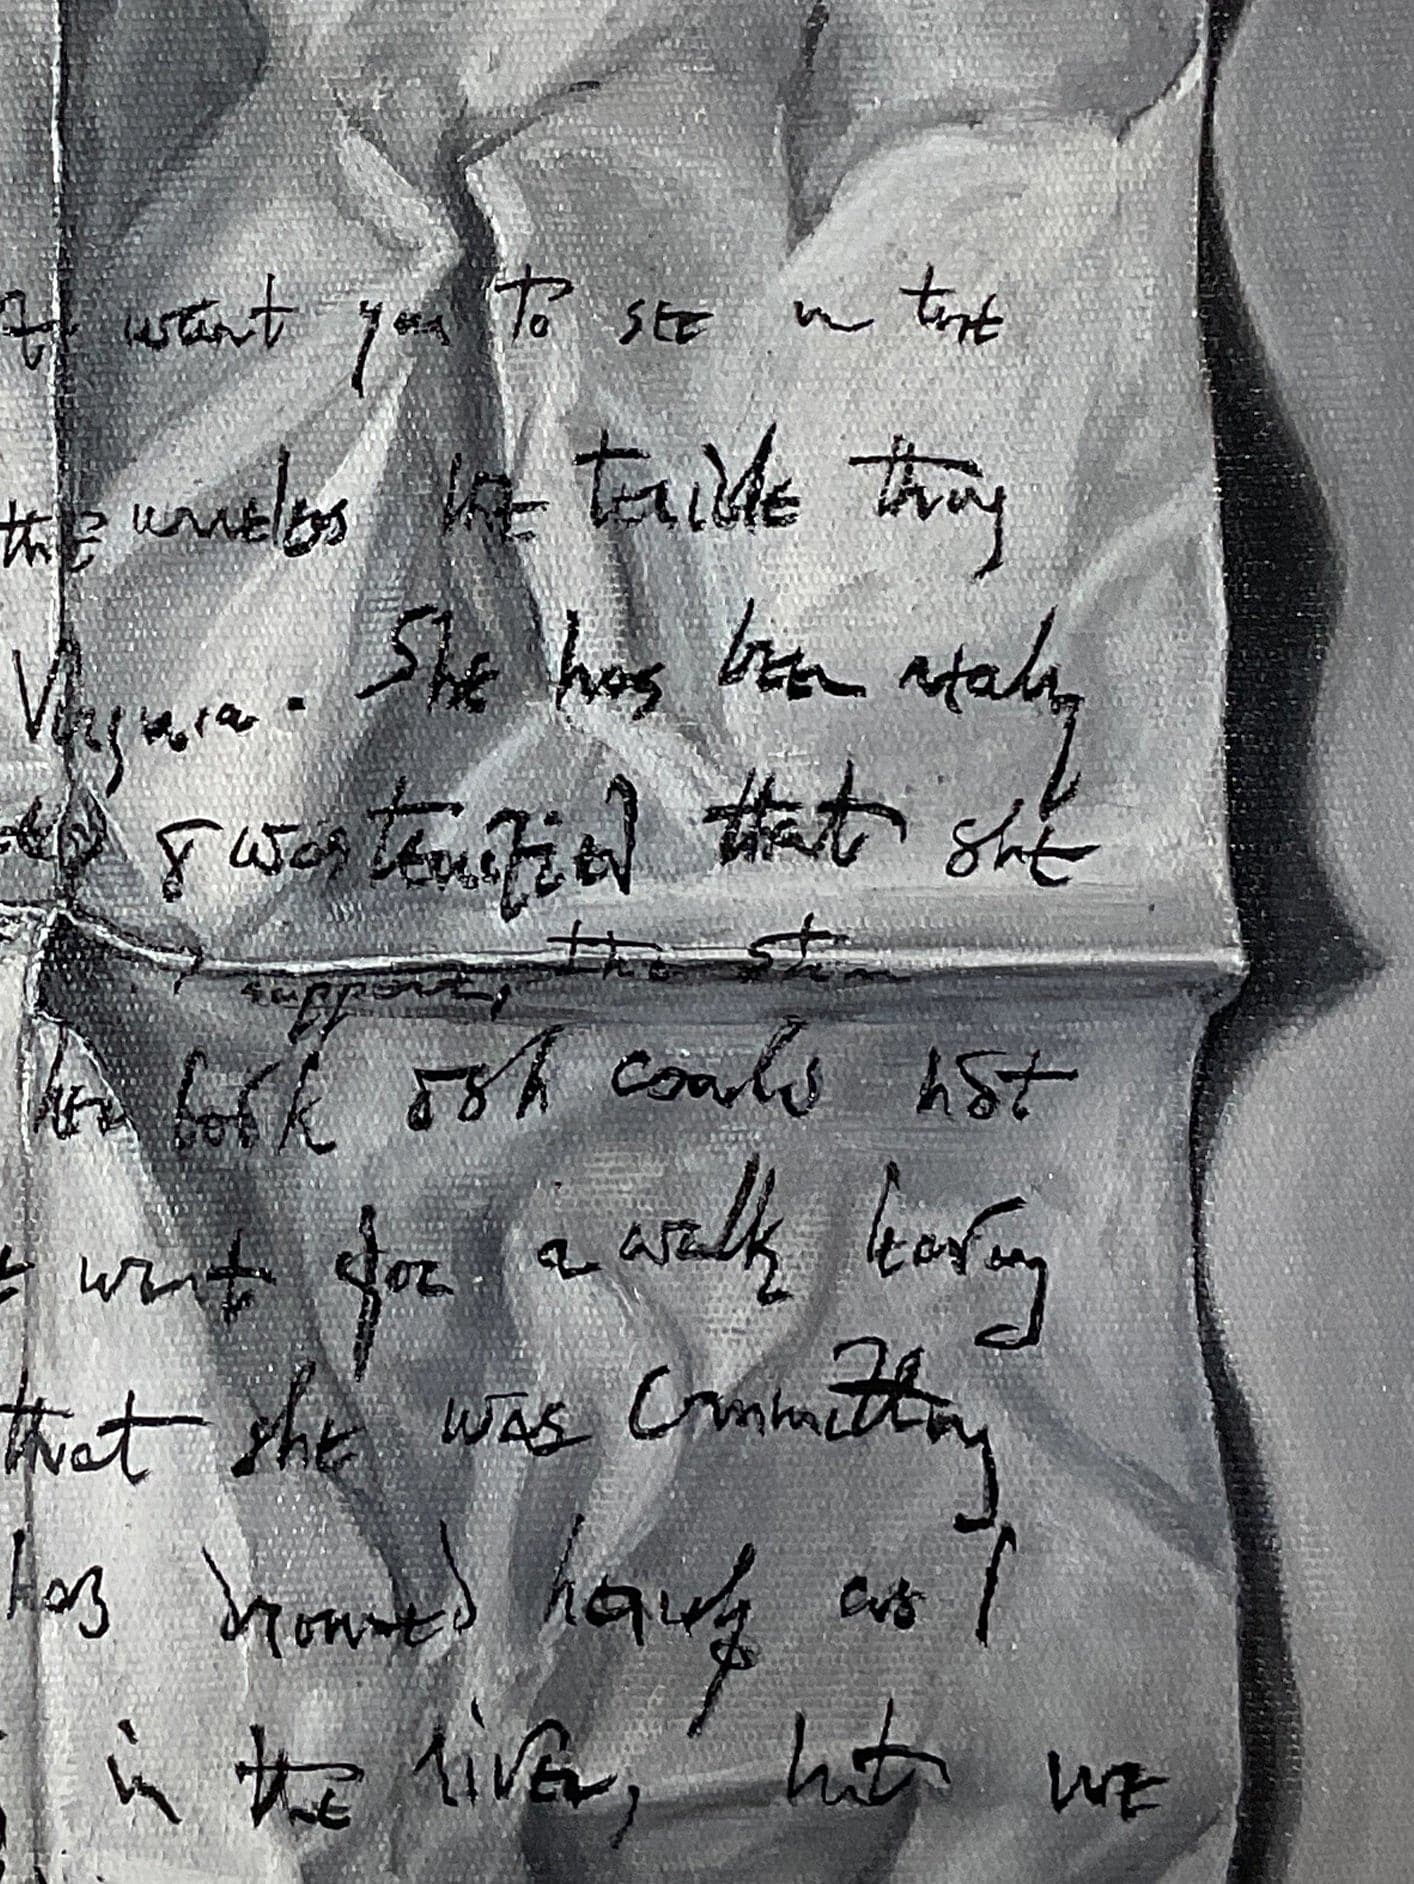 want you to see in the
the wireless the terrible thing
Virginia. She has been really
I was terrified that she
support, the stra
her book & sh could not
went for a walk leaving
that she was committing
has drowned herself as I
in the river, but we